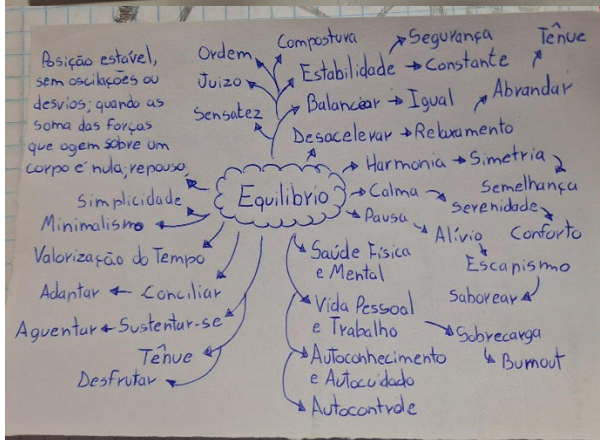 Posição estável,
sem oscilações ou
desvios; quando as
soma das forças
que agem sobre um
corpo é nula; repouso.
Ordem
Juizo
Sensatez
Compostura
Estabilidade → Segurança
→ Constante
Balancear → Igual
Desacelerar → Relaxamento
Abrandar
Tênue
Equilibrio
Harmonia → Simetria
Semelhança
Calma
Serenidade
Conforto
Pausa
Alívio
Escapismo
Saborear
Simplicidade
Minimalismo
Valorização do Tempo
Adaptar ← Conciliar
Aguentar ← Sustentar-se
Tênue
Desfrutar
Saúde Física
e Mental
Vida Pessoal
e Trabalho
Sobrecarga
Burnout
Autoconhecimento
e Autocuidado
Autocontrole